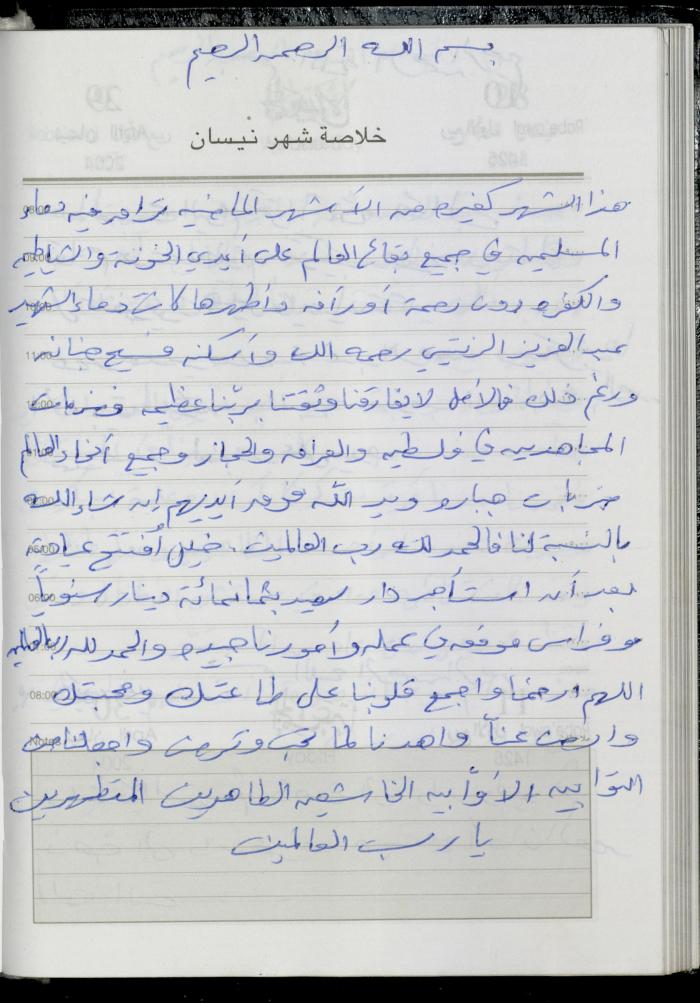 بسم الله الرحمن الرحيم
خلاصة شهر نيسان
هذا الشهر كغيره من الأشهر الماضية تراق فيه دماء
المسلمين في جميع بقاع العالم على أيدي الخونة والشياطين
والكفره دون رحمة أو رأفه وأطهرها كانت دماء الشهيد
عبد العزيز الرنتيسي رحمه الله وأسكنه فسيح جنانه
ورغم ذلك فالأمل لا يفارقنا وثقتنا بربّنا عظيمه فضربات
المجاهدين في فلسطين والعراق والحجاز وجميع أنحاء العالم
ضربات جباره ويد الله فوق أيديهم إن شاء الله
بالنسبة لنا فالحمد لله رب العالمين. خليل أفتتح عيادة
بعد أن استأجر دار سعيد بثمانمائة دينار سنوياً
وفراس موفق في عمله وأمورنا جيده والحمد لله رب العالمين
08:00 اللهم ارحمنا واجمع قلوبنا على طاعتك ومحبتك
Notes وارض عنّا واهدنا لما تحب وترضى واجعلنا من
التوابين الأوّابين الخاشعين الطاهرين المتطهرين
يا رب العالمين